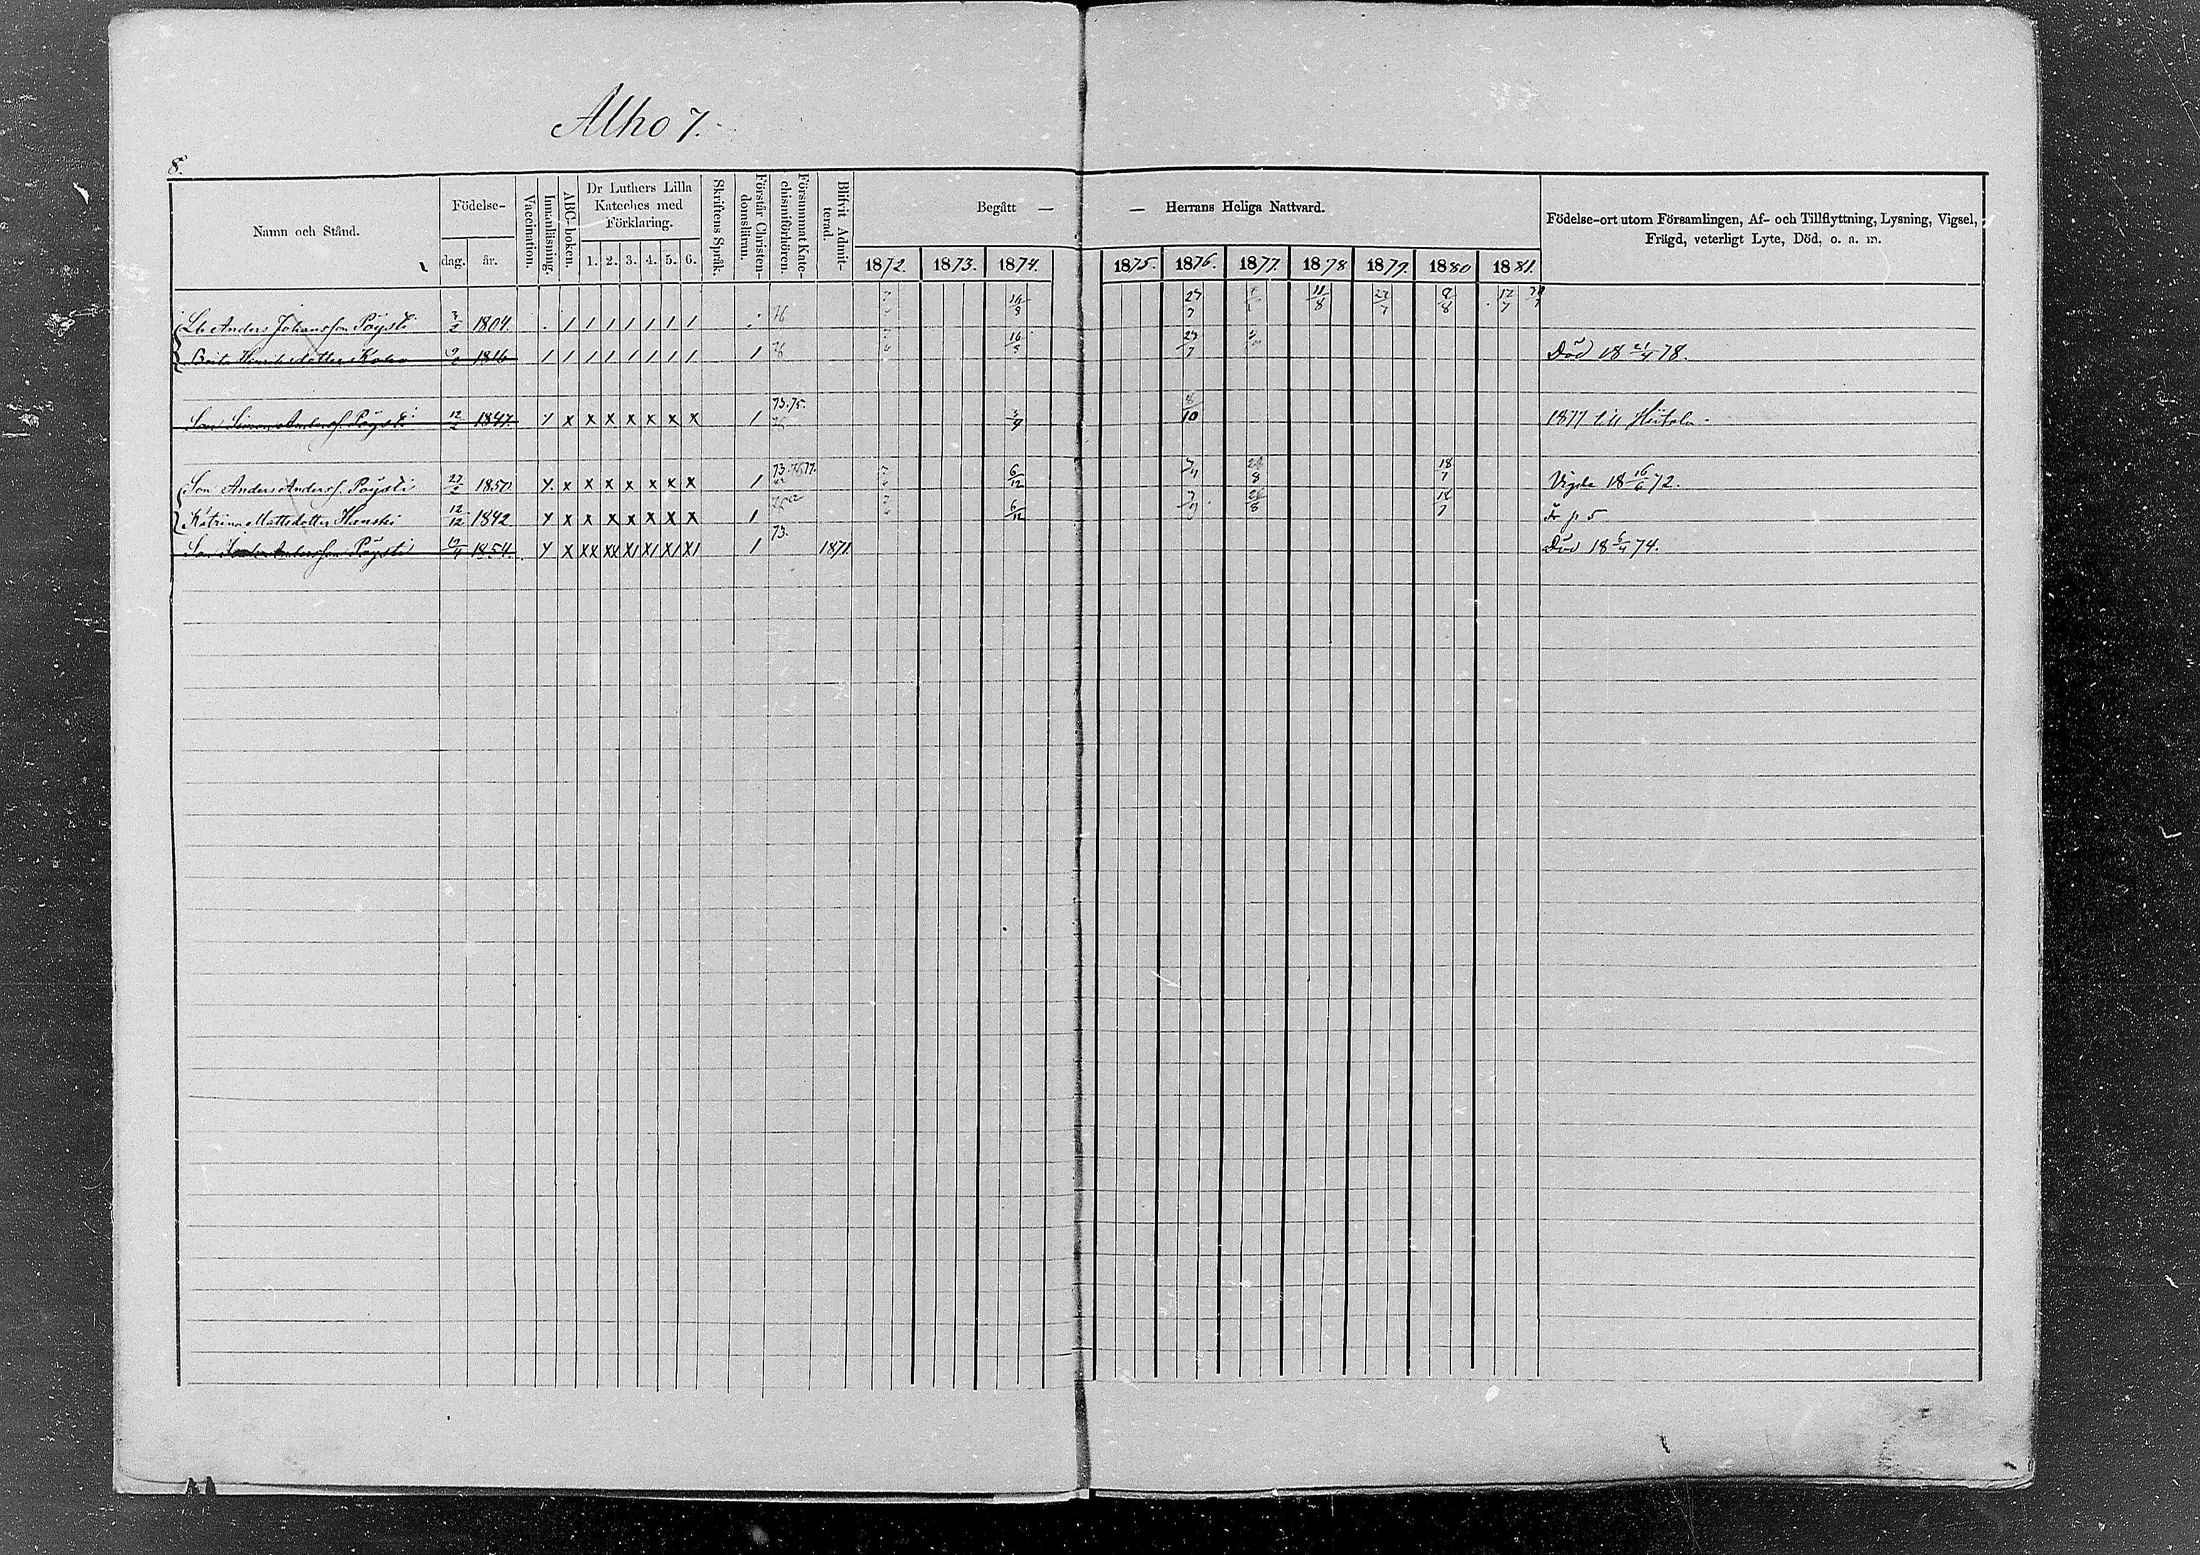 Alho 7.
8.
Namn och Stånd.
Födelse-
dag. år.
Vaccination.
Innanläsning.
ABC-boken.
Dr Luthers Lilla
Kateches med
Förklaring.
1. 2. 3. 4. 5. 6.
Skriftens Språk.
Förstår Christen-
domsläran.
Försummat Kate-
chismiförhören.
Blifvit Admit-
terad.
Begått — — Herrans Heliga Nattvard.
1872. 1873. 1874. 1875. 1876. 1877. 1878 1879. 1880 1881.
Födelse-ort utom Församlingen, Af- och Tillflyttning, Lysning, Vigsel,
Frägd, veterligt Lyte, Död, o. a. m.
Lb Anders Johansson Pöysti 3/2 1804. 76 16/8 27/7 11/8 23/7 8/8 17/7
Brita Henriksdotter 1816 / / / / / / / / / 76 16/8 27/7 Död 18 21/4 78.
Son Simon Anders. Pöysti 12/2 1847. Y x x x x x x x / 73.75. 76 3/4 8/10 1877 till Hiitola.
Son Anders Anders. Pöysti 27/2 1850 Y x x x x x x x / 73. 6/12 26/8 18/7 Vigde 18 16/6 72.
Katrina Mattsdotter Hanski 12/12 1842 Y x x x x x x x / 6/12 26/8 18/7 Fr p. 5
Son Andersson Pöysti 1854. Y X XX XX XI XI XI XI / 73. 1871. Död 18 6/4 74.